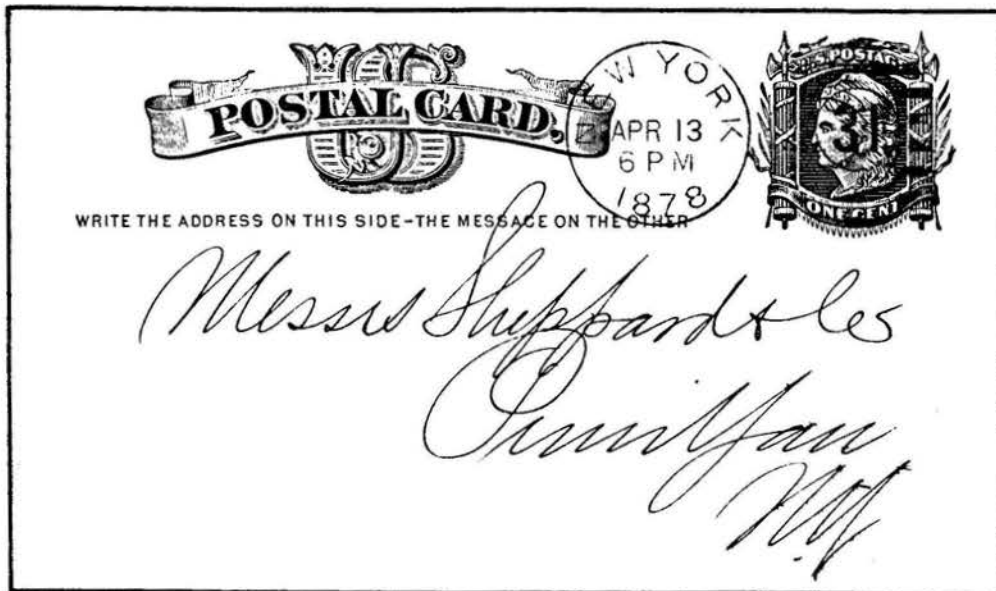 US
POSTAL CARD.
NEW YORK
APR 13
6 PM
1878
U.S. POSTAGE
31
ONE CENT
WRITE THE ADDRESS ON THIS SIDE-THE MESSAGE ON THE OTHER
Messrs Sheppard & Co
Penn Yan
N.Y.